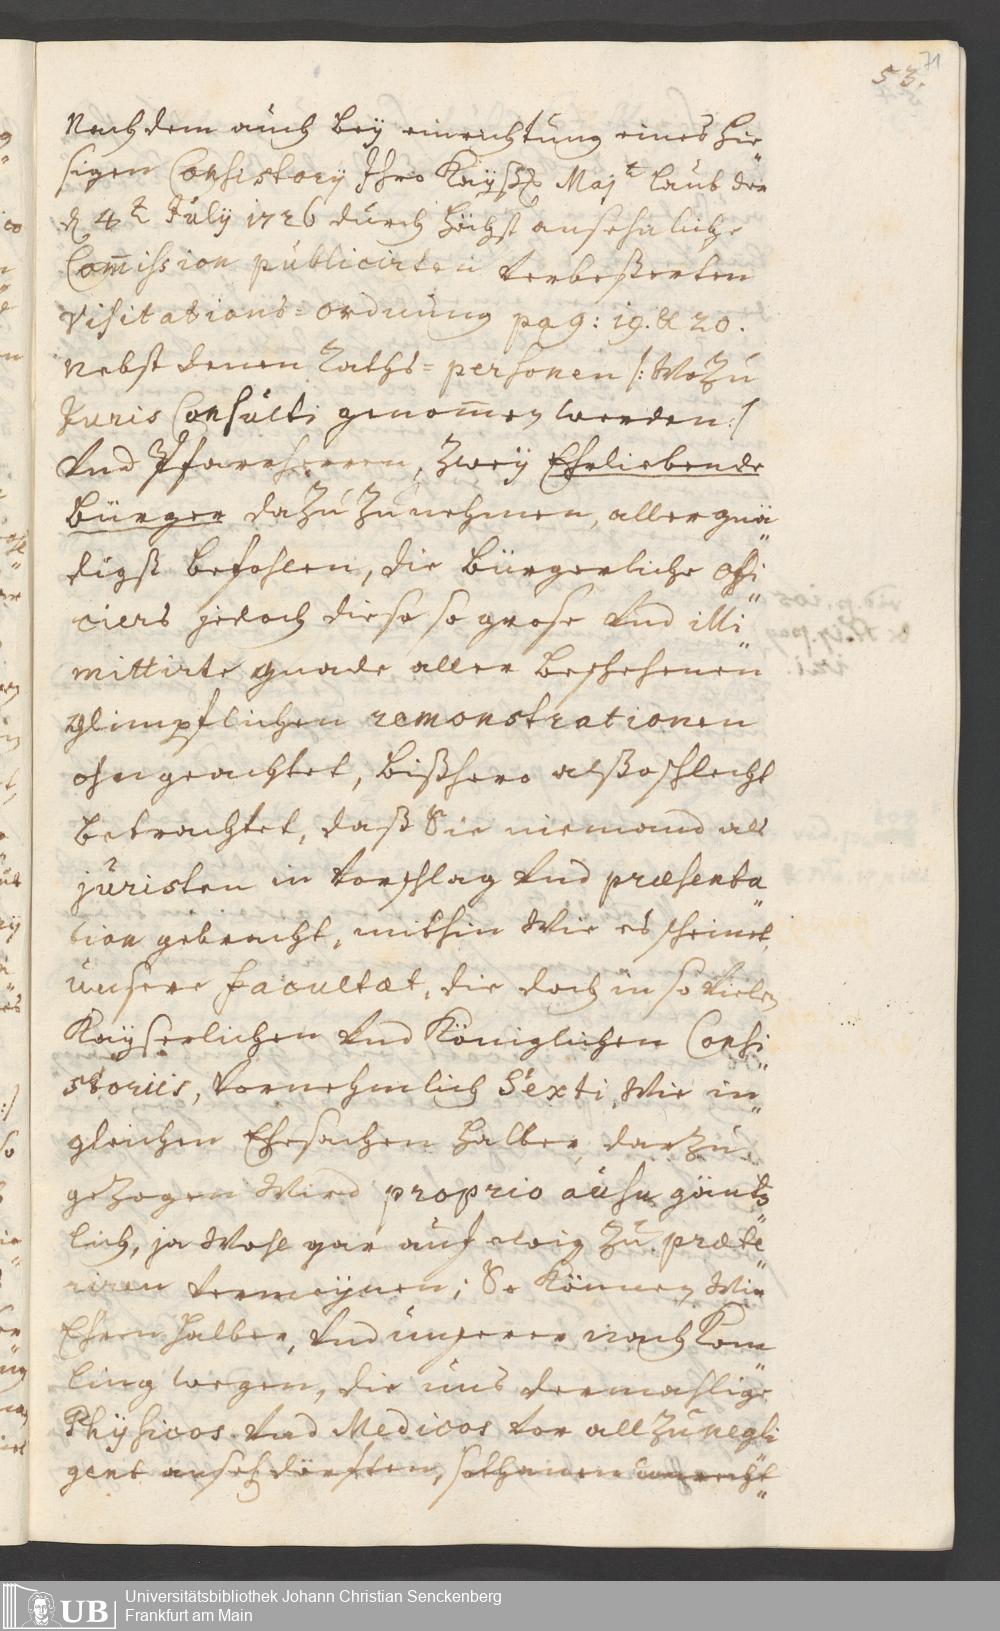 71
53.
Nachdem auch bey einrichtung eines hie"
sigen Consistorij Ihro Kayßl. Majt. laut der
d 4t July 1726 durch höchst ansehnliche
Com̄ission publicirten verbeßerten
Visitations=ordnung pag: 19. & 20.
nebst denen Raths=personen /: Wozu
Juris Consulti genom̄en werden :/
und Pfarrherren, zwey Ehrliebende
Bürger dazu zu nehmen, allergnä"
digst befohlen, die Bürgerliche offi"
ciers jedoch diese so grose und illi"
mittirte gnade aller beschehenen
glimpflichen remonstrationen
ohngeachtet, bißhero alßo schlecht
betrachtet, daß Sie niemand als
juristen in vorschlag und præsenta"
tion gebracht, mithin Wie es scheinet,
unsere facultæt, die doch in so vielen
Kayserlichen und Königlichen Consi"
storiis, vornehmlich Sexti, Wie in"
gleichen Ehesachen halber, darzu
gezogen Wird proprio ausu gäntz"
lich, ja Wohl gar auf ewig zu præte"
riren vermeynen; So können Wir
Ehren halber, und unserer nachkom"
ling wegen, die uns dermahlige
Physicos und Medicos vor allzu negli"
gent ansehen dörften, sothanen
Universitätsbibliothek Johann Christian Senckenberg
Frankfurt am Main
UB